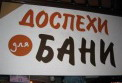 ДОСПЕХИ
для
БАНИ